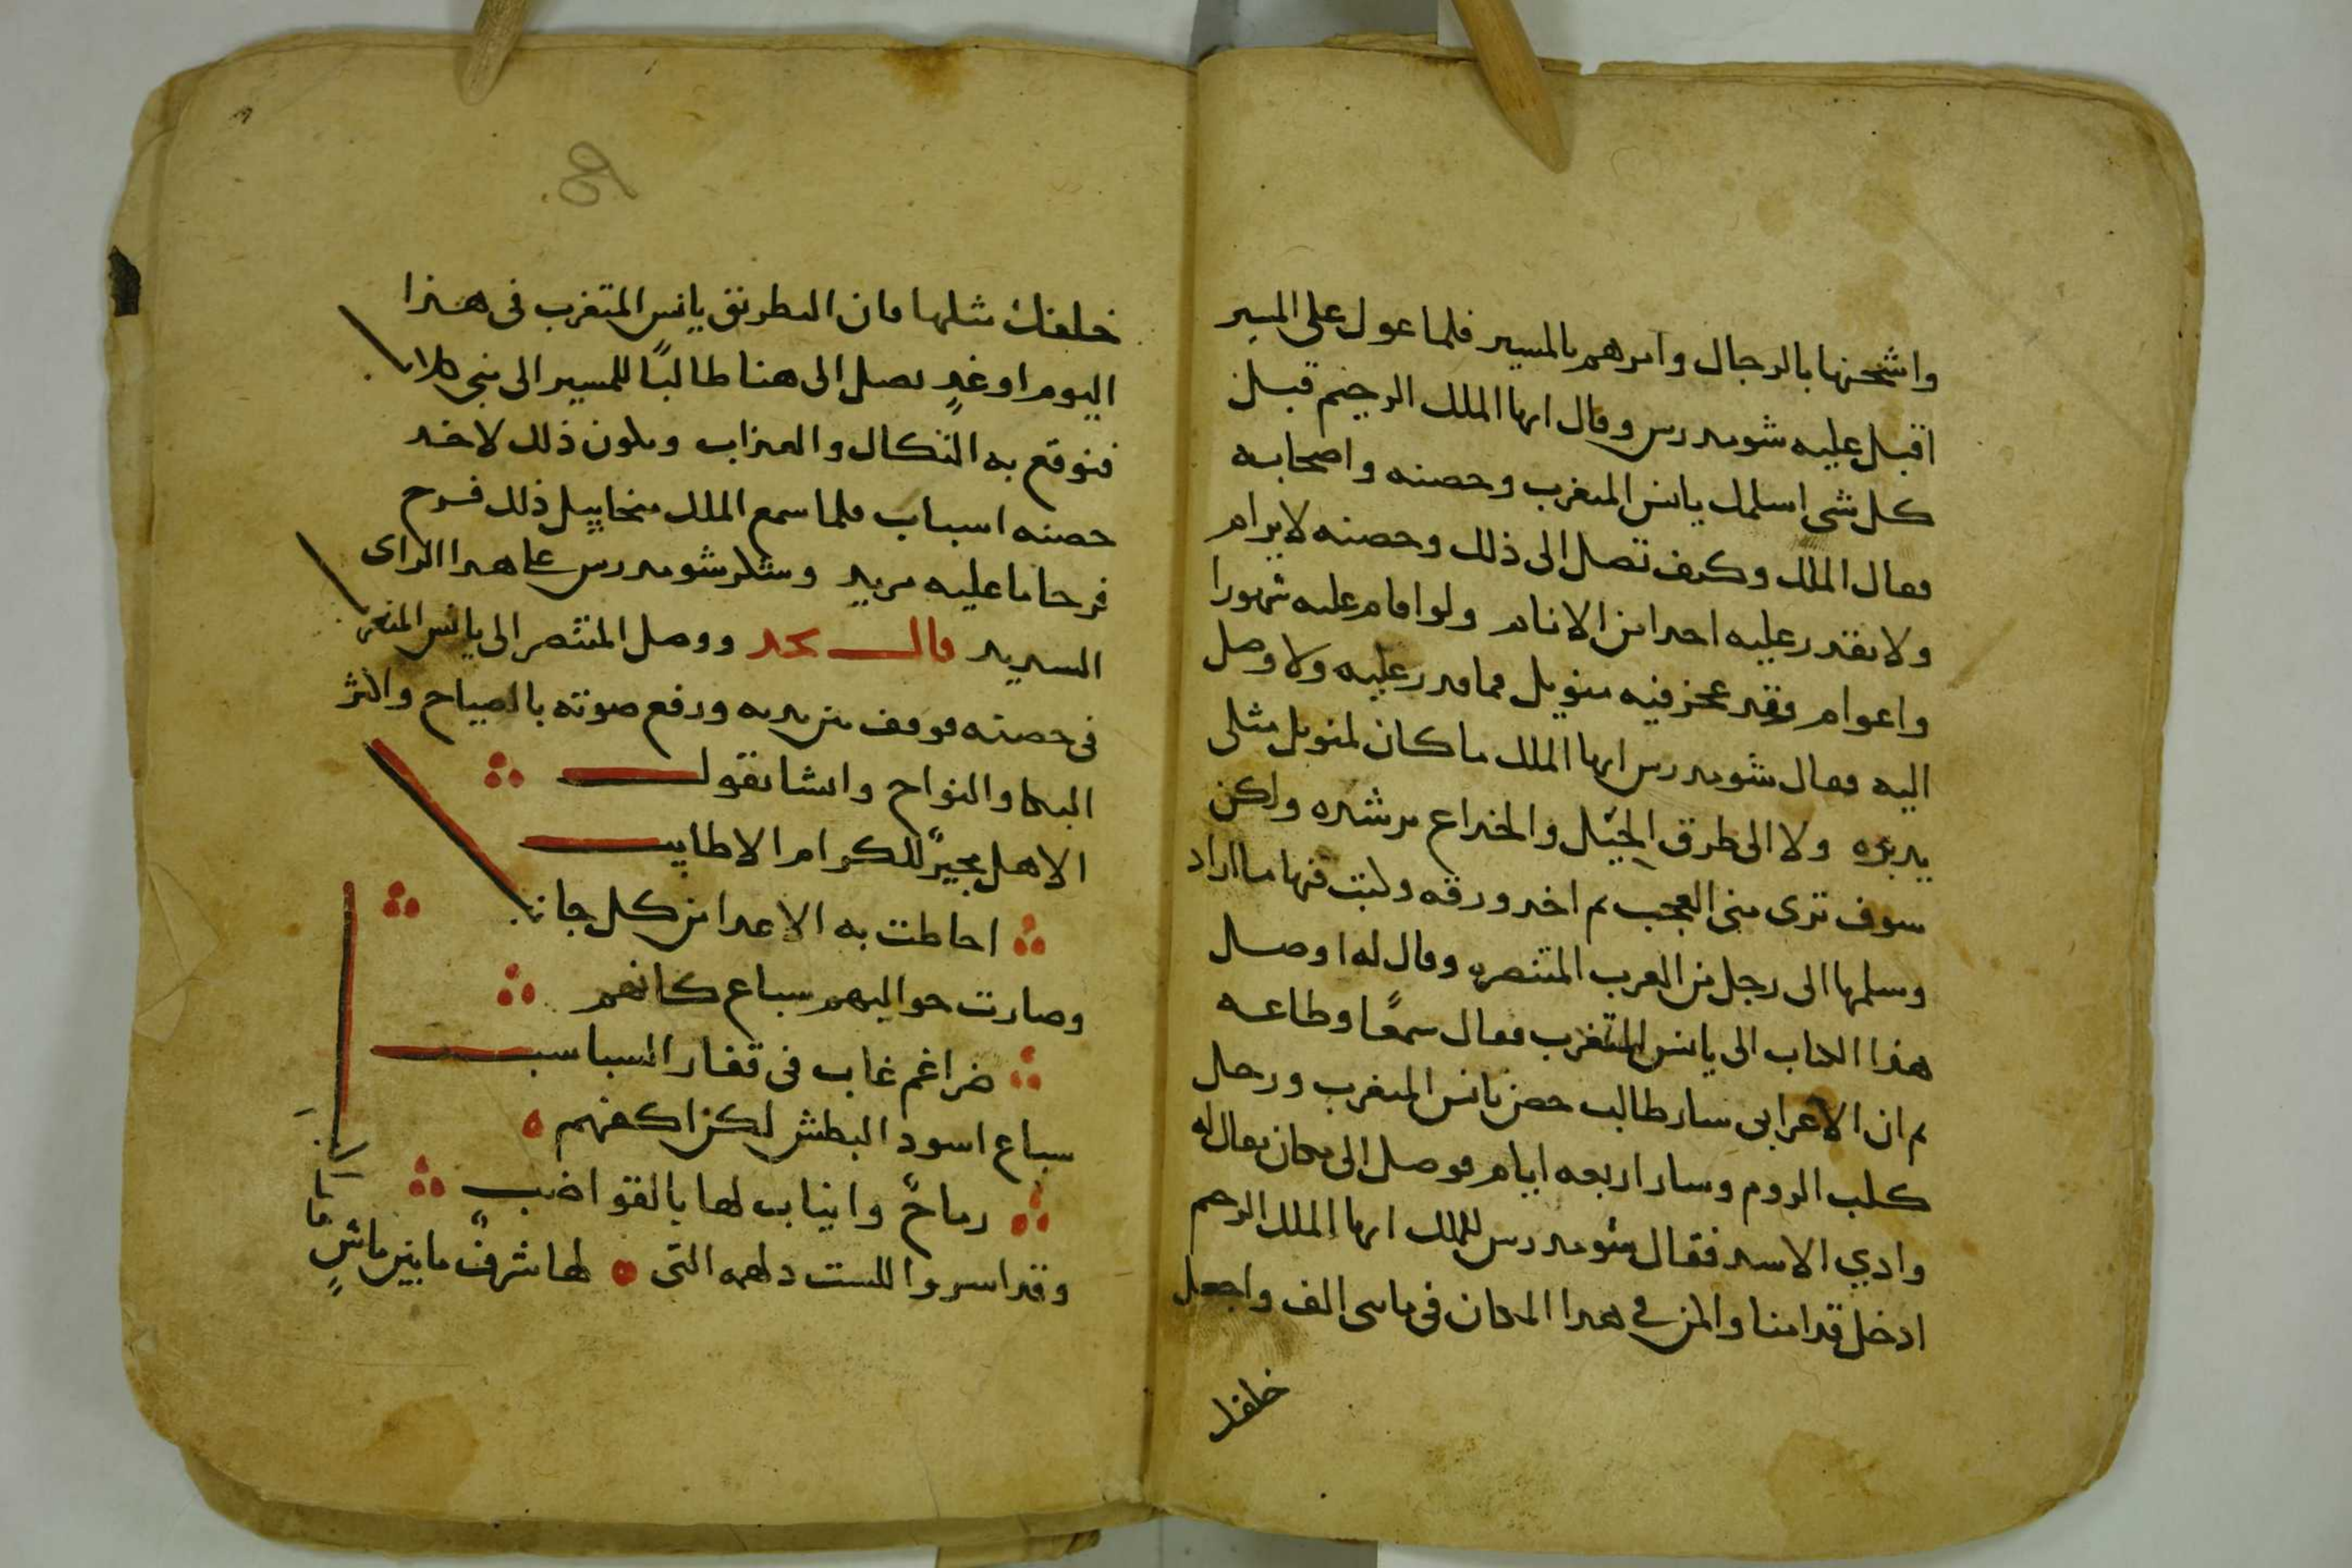 واشحنها بالرجال وامرهم بالمسير فلما عول على المسير
اقبل عليه شومدرس وقال ايها الملك الرحيم قبل
كل شى اسلمك يانس المتغرب وحصنه واصحابه
فقال الملك وكيف تصل الى ذلك وحصنه لا يرام
ولا يقدر عليه احدا من الانام ولو اقام عليه شهورا
واعوام وقد عجز فيه منويل فما قدر عليه ولا وصل
اليه فقال شومدرس ايها الملك ما كان لمنويل مثلى
يدبره ولا الى طرق الحيل والخداع يرشده ولكن
سوف ترى منى العجب ثم اخد ورقه وكتب فيها ما اراد
وسلمها الى رجل من العرب المتنصره وقال له اوصل
هذا الكتاب الى يانس المتغرب فقال سمعًا وطاعه
ثم ان الاعرابى سار طالب حصن يانس المتغرب ورحل
كلب الروم وسار اربعه ايام فوصل الى مكان يقال له
وادي الاسد فقال شومدرس للملك ايها الملك الرحيم
ادخل قدامنا واكمن في هدا المكان فى مايى الف واجعل
خلفك
خلفك مثلها فان البطريق يانس المتغرب فى هذا
اليوم او غدٍ يصل الى هنا طالبًا للمسير الى بنى كلاب
فنوقع به النكال والعذاب ويكون ذلك لاخد
حصنه اسباب فلما سمع الملك ميخاييل ذلك فرح
فرحا ما عليه مزيد وشكر شومدرس على هدا الراى
السديد قال نجد ووصل المنتصر الى يانس المتغرب
فى حصنه فوقف بين يديه ورفع صوته بالصياح واكثر
البكا والنواح وانشا يقول
الا هل مجيرً للكرام الاطايب
احاطت به الاعدا من كل جانب
وصارت حواليهم سباع كانهم
ضراغم غاب فى قفار السباسب
سباع اسود البطش لكن اكفهم
رماحً وانياب لها بالقواضب
وقد اسروا للست دلهمه التى لها شرفً ما بين ماشٍ